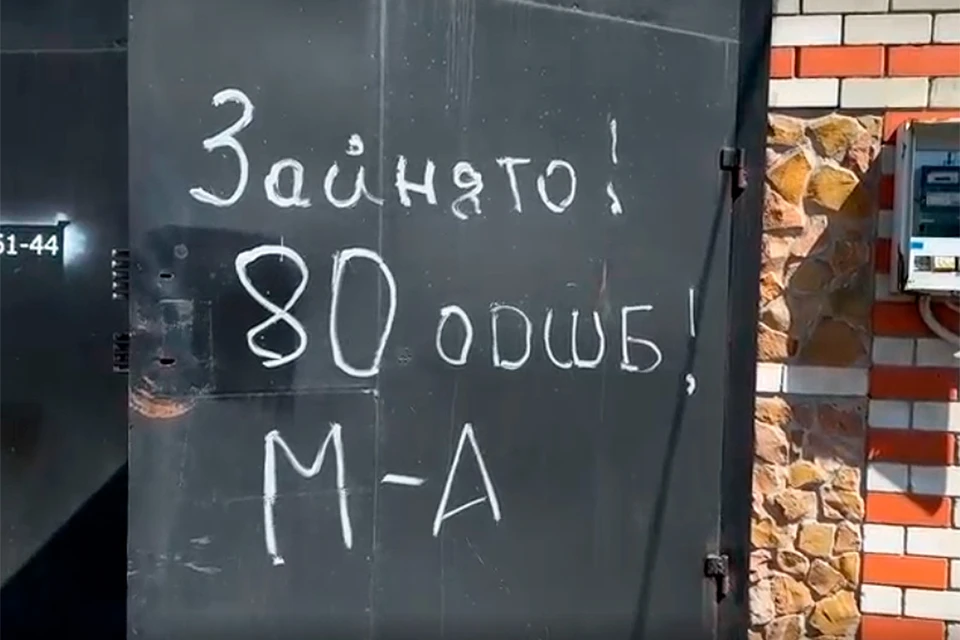 Зайнято!
51-44
80 ОДШБ!
М-А